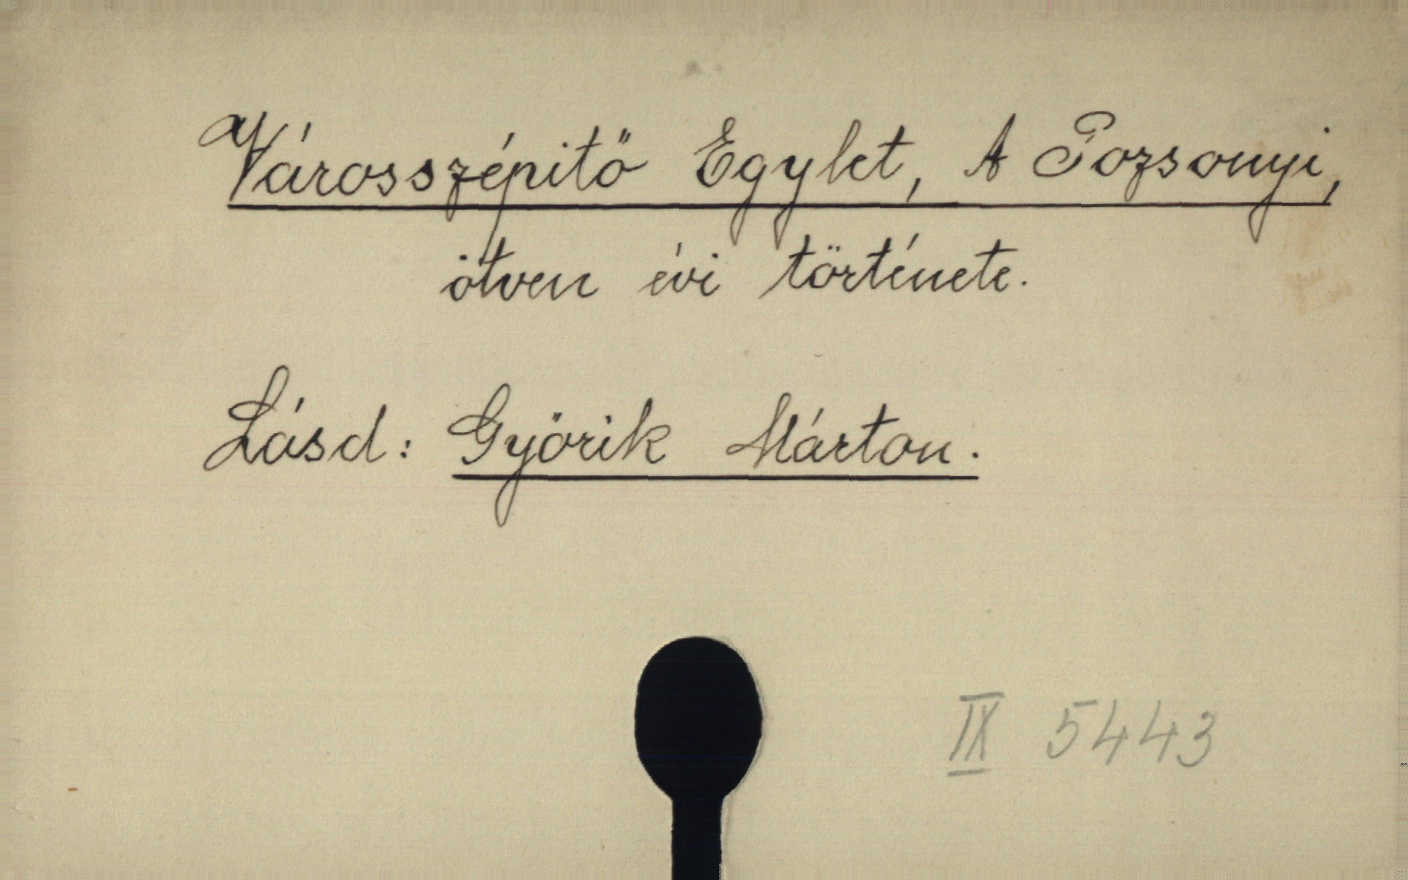 Városszépitő Egylet, A Pozsonyi,
ötven évi története.
Lásd: Györik Márton.
IX 5443